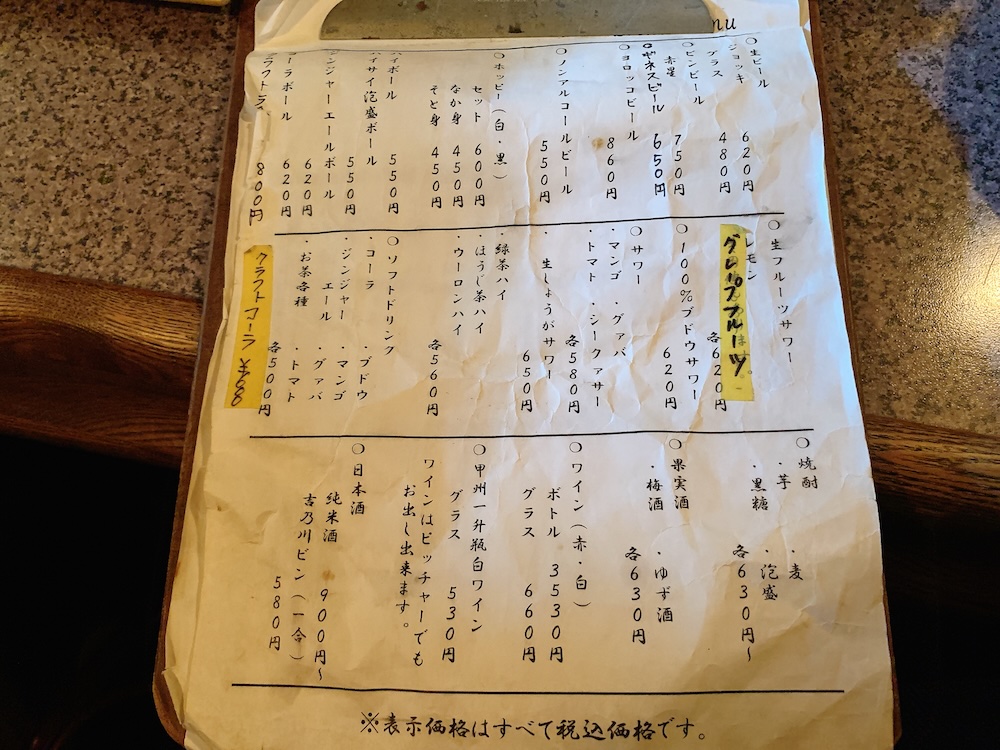 nu
○生ビール
ジョッキ 620円
グラス 480円
○ビンビール
赤星 750円
○ギネスビール 650円
○ヨロッコビール
860円
○ノンアルコールビール
550円
○ホッピー(白・黒)
セット 600円
なか身 450円
そと身 450円
ハイボール 550円
ハイサイ泡盛ボール
550円
ジンジャーエールボール
620円
コーラボール 620円
800円
○生フルーツサワー
レモン
グレープフルーツ
各620円
○100%ブドウサワー
620円
○サワー
・マンゴ ・グァバ
・トマト ・シークァサー
各580円
・生しょうがサワー
650円
・緑茶ハイ
・ほうじ茶ハイ
・ウーロンハイ
各560円
○ソフトドリンク
・コーラ ・ブドウ
・ジンジャーエール ・マンゴ
・グァバ
・お茶各種 ・トマト
各500円
クラフトコーラ ¥600
○焼酎
・芋 ・麦
・黒糖 ・泡盛
各630円~
○果実酒
・梅酒 ・ゆず酒
各630円
○ワイン(赤・白)
ボトル 3530円
グラス 660円
○甲州一升瓶白ワイン
グラス 530円
ワインはピッチャーでも
お出し出来ます。
○日本酒
純米酒 900円~
吉乃川ビン(一合)
580円
※表示価格はすべて税込価格です。